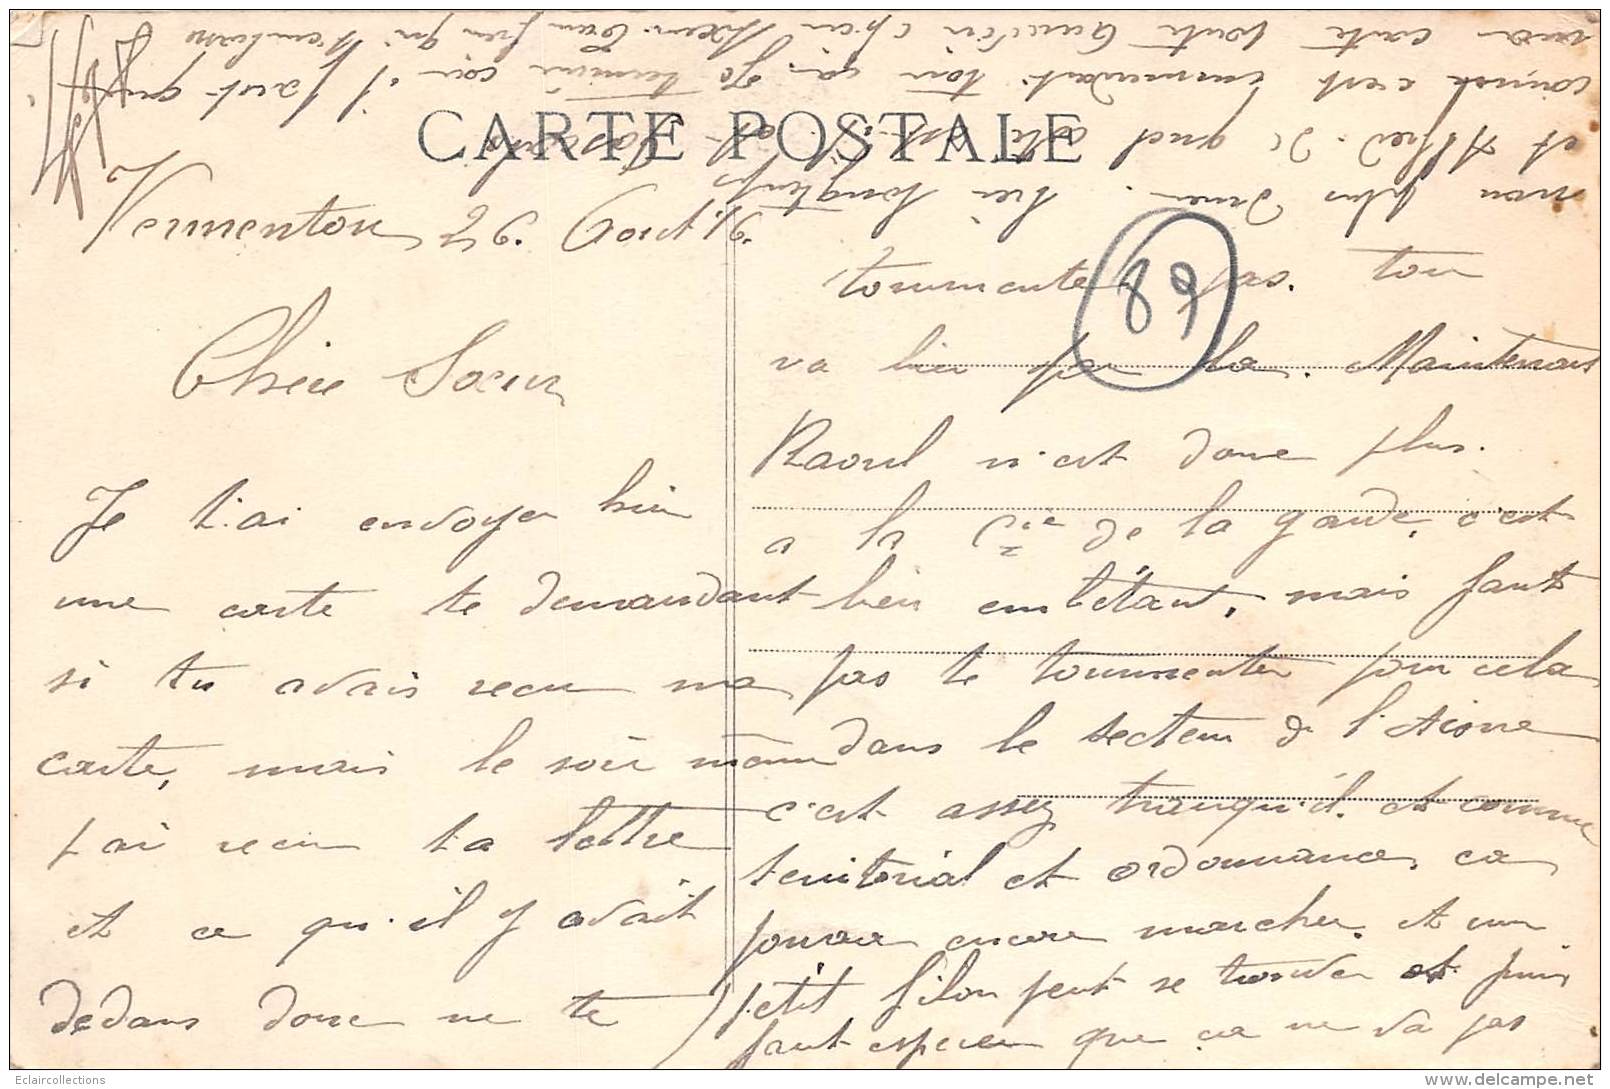 CARTE POSTALE
Vermenton 26. Aout 16.
Chère Sœur
Je t'ai envoyer hier
une carte te demandant
si tu avais recu ma
carte, mais le soir même
j'ai recu ta lettre
et ce qu'il y avait
dedans donc ne te
tourmente pas. tou
va bien par la. Maintenant
Raoul n'est donc plus.
a la Cie de la garde, c'est
bien embêtant, mais faut
pas te tourmenter pour cela
dans le secteur de l'Aisne
c'est assez tranquil. et comme
territorial et ordonnance, ca
pourra encore marcher. et un
petit filon peut se trouver et puis
faut esperer que ca ne va pas
non plus durer longtemps
et Alfred. de quel coté est-il
connok c'est emmerdant tou ça. Je termine car il faut que
ma carte parte
89
Eclaircollections
www.delcampe.net